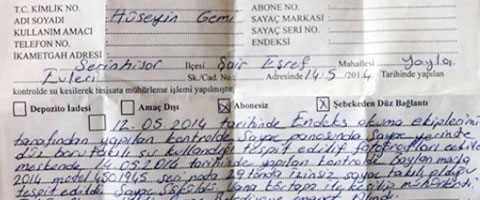 T.C. KİMLİK NO.
ADI SOYADI Hüseyin Gemi
KULLANIM AMACI
TELEFON NO.
İKAMETGAH ADRESİ
ABONE NO.
SAYAÇ MARKASI
SAYAÇ SERİ NO.
ENDEKSİ
Serinhisar İlçesi Şair Eşref Mahallesi Yayla
Evleri Sk./Cad. No. Adresinde 14.5/2014 Tarihinde yapılan
kontrolde su kesilerek tesisata mühürleme işlemi yapılmıştır.
Depozito İadesi Amaç Dışı Abonesiz Şebekeden Düz Bağlantı
12.05.2014 tarihinde Endeks okuma ekiplerini
tarafından yapılan kontrolde Sayaç panosında Sayaç yerinde
düz boru takılı su kullandığı tespit edilip fotoğrafları
meskende .05.2014 tarihinde yapılan kontrolde baylan marka
2014 model 4501945 seri nolu tonda izinsiz sayaç takılı olduğu
tespit edildi Sayaç Söküldü